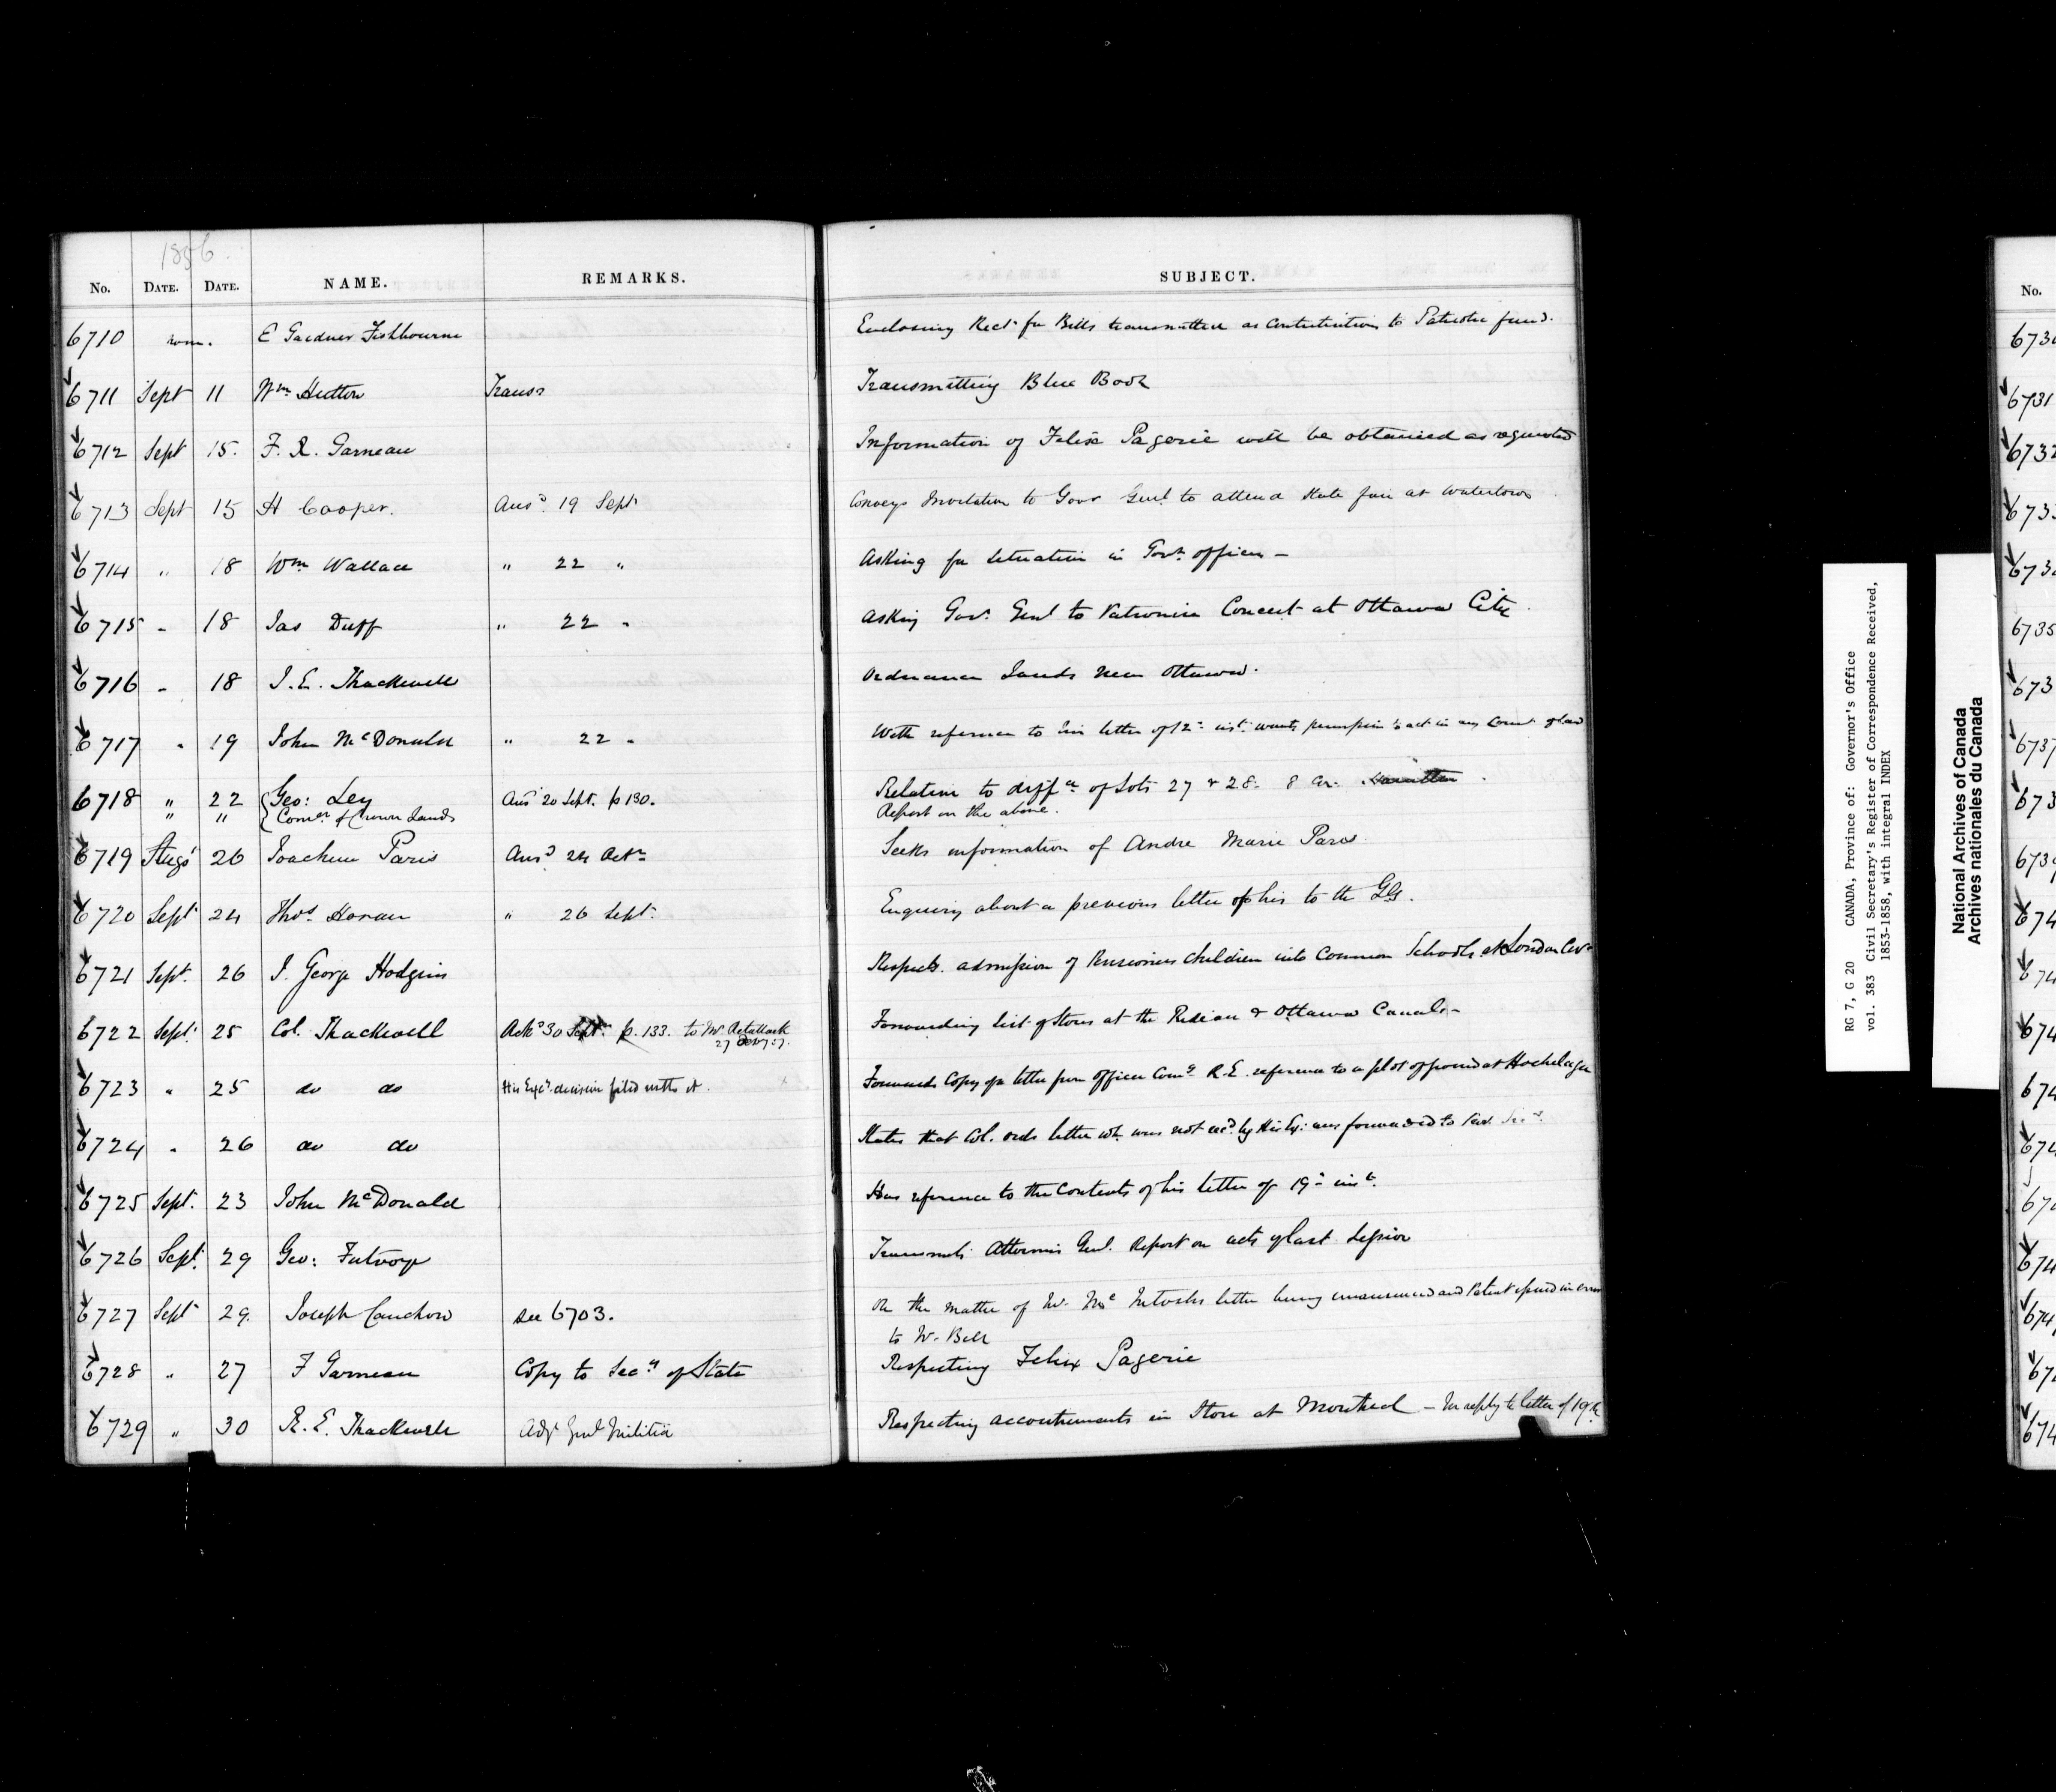 1856.
No. DATE. DATE. NAME. REMARKS. SUBJECT.
6710 E Gardner Fishbourne Enclosing Rect. for Bills transmitted as Contributions to Patriotic fund.
6711 Sept 11 Wm. Hutton Trans Transmitting Blue Book
6712 Sept 15. F. X. Garneau Information of Felix Pagerie will be obtained as requested
6713 Sept 15 H Cooper. Ansd. 19 Sept Conveys Invitation to Govr Genl. to attend State fair at Watertown
6714 " 18 Wm Wallace " 22 " Asking for situation in Govt. offices -
6715 " 18 Jas Duff " 22 " Asking Gov. Genl to Patronise Concert at Ottawa City.
6716 " 18 J. E. Thackwell Ordnance Lands near Ottawa.
6717 " 19 John McDonald " 22 " With reference to his letter of 12th inst. wants permission to act in any Court of Law
6718 " 22 Geo: Ley Ansd 20 Sept. p 130. Relative to diffce of Lots 27 & 28. 8 Con.
" " Comer. of Crown Lands Report on the above.
6719 Augt 26 Joachim Paris Ansd 24 Octr Seeks information of Andre Marie Paris
6720 Sept 24 Thos. Horan " 26 Sept. Enquiry about a previous letter of his to the G.G.
6721 Sept. 26 J. George Hodgins Respects. admission of Pensioners Children into Common Schools at London C.W.
6722 Sept. 25 Col. Thackwell Ackd 30 Sept. p. 133. to Mr. 27 Forwarding list of Stores at the Rideau & Ottawa Canals -
6723 " 25 do do His Excy's. decision filed with it. Forwards Copy of a letter from officer Comg R.E. reference to a plot of ground at Hochelaga
6724 " 26 do do States that Col. ords letter wh. was not recd. by His Ex: was forwarded to
6725 Sept. 23 John McDonald Has reference to the Contents of his letter of 19th inst.
6726 Sept. 29 Geo: Futvoye Transmits Attorney Genl. Report on acts of last Session
6727 Sept 29. Joseph Cauchon see 6703. On the matter of Mr. McIntoshs letter being unanswered and Patent issued in error
to W. Bell
6728 " 27 F Garneau Copy to Secy of State Respecting Felix Pagerie
6729 " 30 R. E. Thackwell Adjt Genl Militia Respecting accoutrements in Store at Montreal - In reply to letter of 19th
RG 7, G 20 CANADA, Province of: Governor's Office
vol. 383 Civil Secretary's Register of Correspondence Received,
1853-1858, with integral INDEX
National Archives of Canada
Archives nationales du Canada
No.
6731
6735